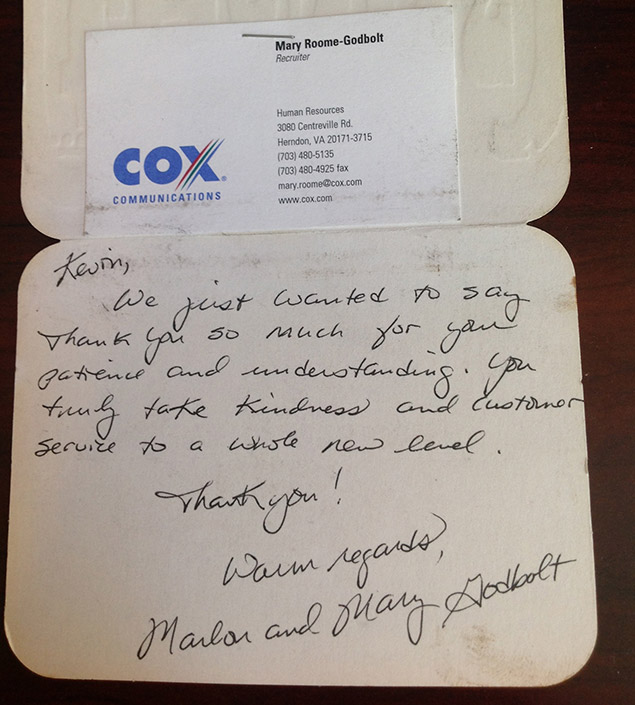 Mary Roome-Godbolt
Recruiter
Human Resources
3080 Centreville Rd.
Herndon, VA 20171-3715
(703) 480-5135
(703) 480-4925 fax
mary.roome@cox.com
www.cox.com
COX®
COMMUNICATIONS
Kevin,
We just wanted to say
Thank you so much for your
patience and understanding. You
truly take kindness and customer
service to a whole new level.
Thank you!
Warm regards,
Marlon and Mary Godbolt